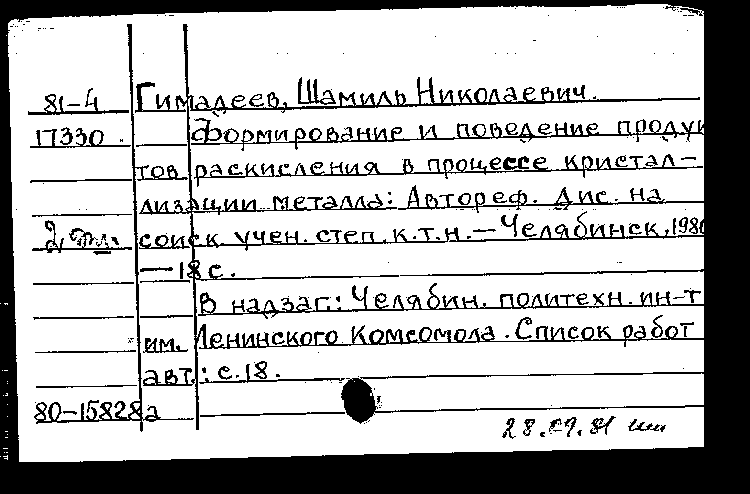 81-4 Гимадеев, Шамиль Николаевич.
17330. Формирование и поведение продук
тов раскисления в процессе кристал-
лизации металла: Автореф. дис. на
соиск. учен. степ. к.т.н. - Челябинск, 1980
- 18 с.
В надзаг.: Челябин. политехн. ин-т
им. Ленинского Комсомола. Список работ
авт.: с. 18.
80-15828а
28.09.81